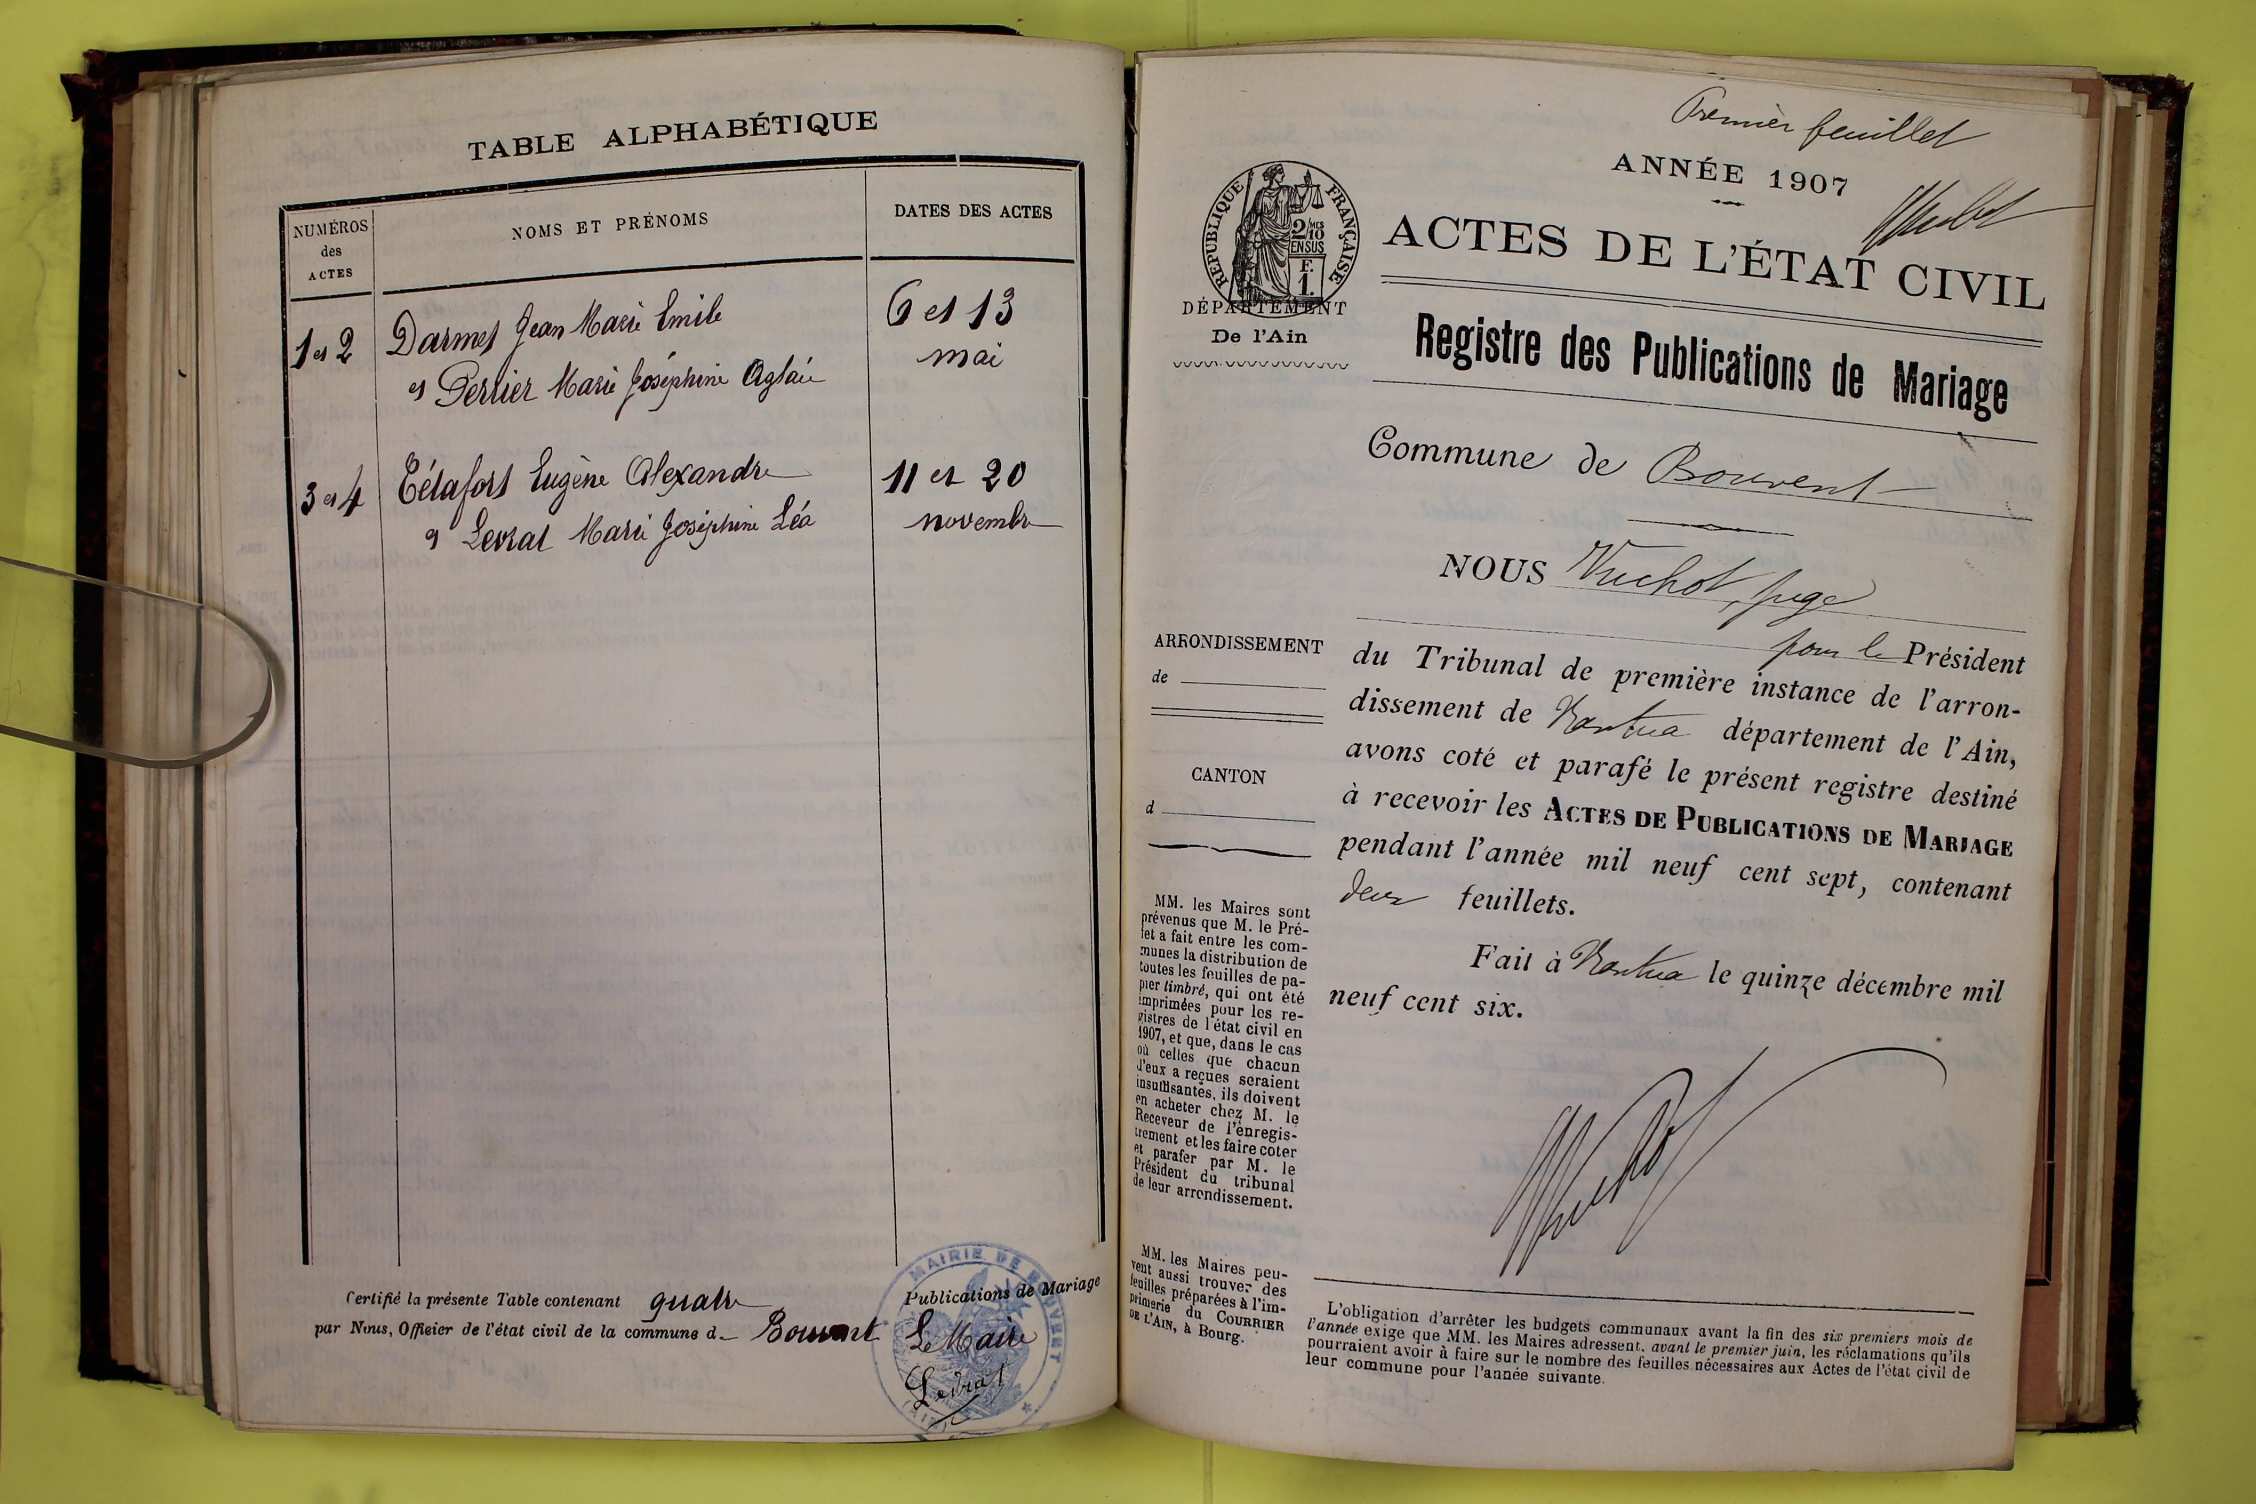 TABLE ALPHABÉTIQUE
NUMÉROS
des
ACTES
NOMS ET PRÉNOMS
DATES DES ACTES
1 et 2
Darmet Jean Marie Emile
et Perrier Marie Joséphine Aglaïe
6 et 13
mai
3 et 4
Tétafort Eugène Alexandre
et Levrat Marie Joséphine Léa
11 et 20
novembre
Certifié la présente Table contenant quatre Publications de Mariage
par Nous, Officier de l'état civil de la commune d Bouvent Le Maire
Levrat
MAIRIE DE BOUVENT
(AIN)
Premier feuillet
ANNÉE 1907
Vuchot
RÉPUBLIQUE FRANÇAISE
2/10 MES
EN SUS
F.
1.
ACTES DE L'ÉTAT CIVIL
DÉPARTEMENT
De l'Ain
Registre des Publications de Mariage
Commune de Bouvent
NOUS Vuchot, juge
pour le Président
du Tribunal de première instance de l'arron-
dissement de Nantua département de l'Ain,
avons coté et parafé le présent registre destiné
à recevoir les ACTES DE PUBLICATIONS DE MARIAGE
pendant l'année mil neuf cent sept, contenant
deux feuillets.
Fait à Nantua le quinze décembre mil
neuf cent six.
Vuchot
ARRONDISSEMENT
de
CANTON
d
MM. les Maires sont
prévenus que M. le Pré-
fet a fait entre les com-
munes la distribution de
toutes les feuilles de pa-
pier timbré, qui ont été
imprimées pour les re-
gistres de l'état civil en
1907, et que, dans le cas
où celles que chacun
d'eux a reçues seraient
insuffisantes, ils doivent
en acheter chez M. le
Receveur de l'enregis-
trement et les faire coter
et parafer par M. le
Président du tribunal
de leur arrondissement.
MM. les Maires peu-
vent aussi trouver des
feuilles préparées à l'im-
primerie du COURRIER
DE L'AIN, à Bourg.
L'obligation d'arrêter les budgets communaux avant la fin des six premiers mois de
l'année exige que MM. les Maires adressent, avant le premier juin, les réclamations qu'ils
pourraient avoir à faire sur le nombre des feuilles nécessaires aux Actes de l'état civil de
leur commune pour l'année suivante.